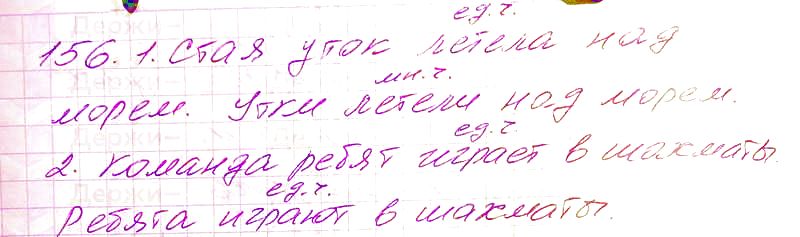 ед.ч.
156. 1. Стая уток летела над
мн.ч.
морем. Утки летели над морем.
ед.ч.
2. Команда ребят играет в шахматы.
ед.ч.
Ребята играют в шахматы.